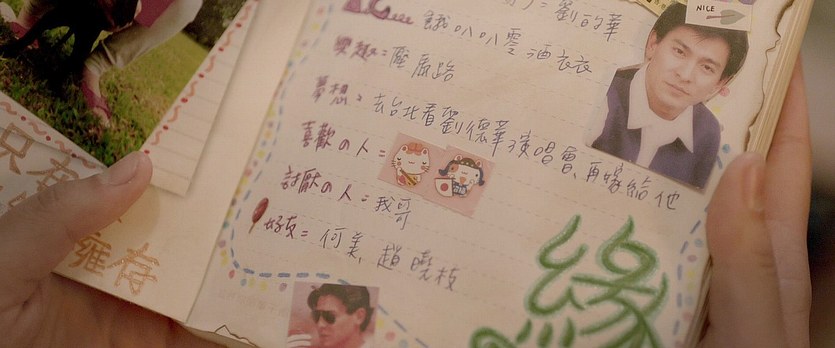 NICE
劉的華
餓叭叭零酒衣衣
興趣=壓馬路
夢想=去台北看劉德華演唱會、再嫁給他
喜歡の人=
討厭の人=我哥
好友=何美,趙曉枝
緣
只有
擁存